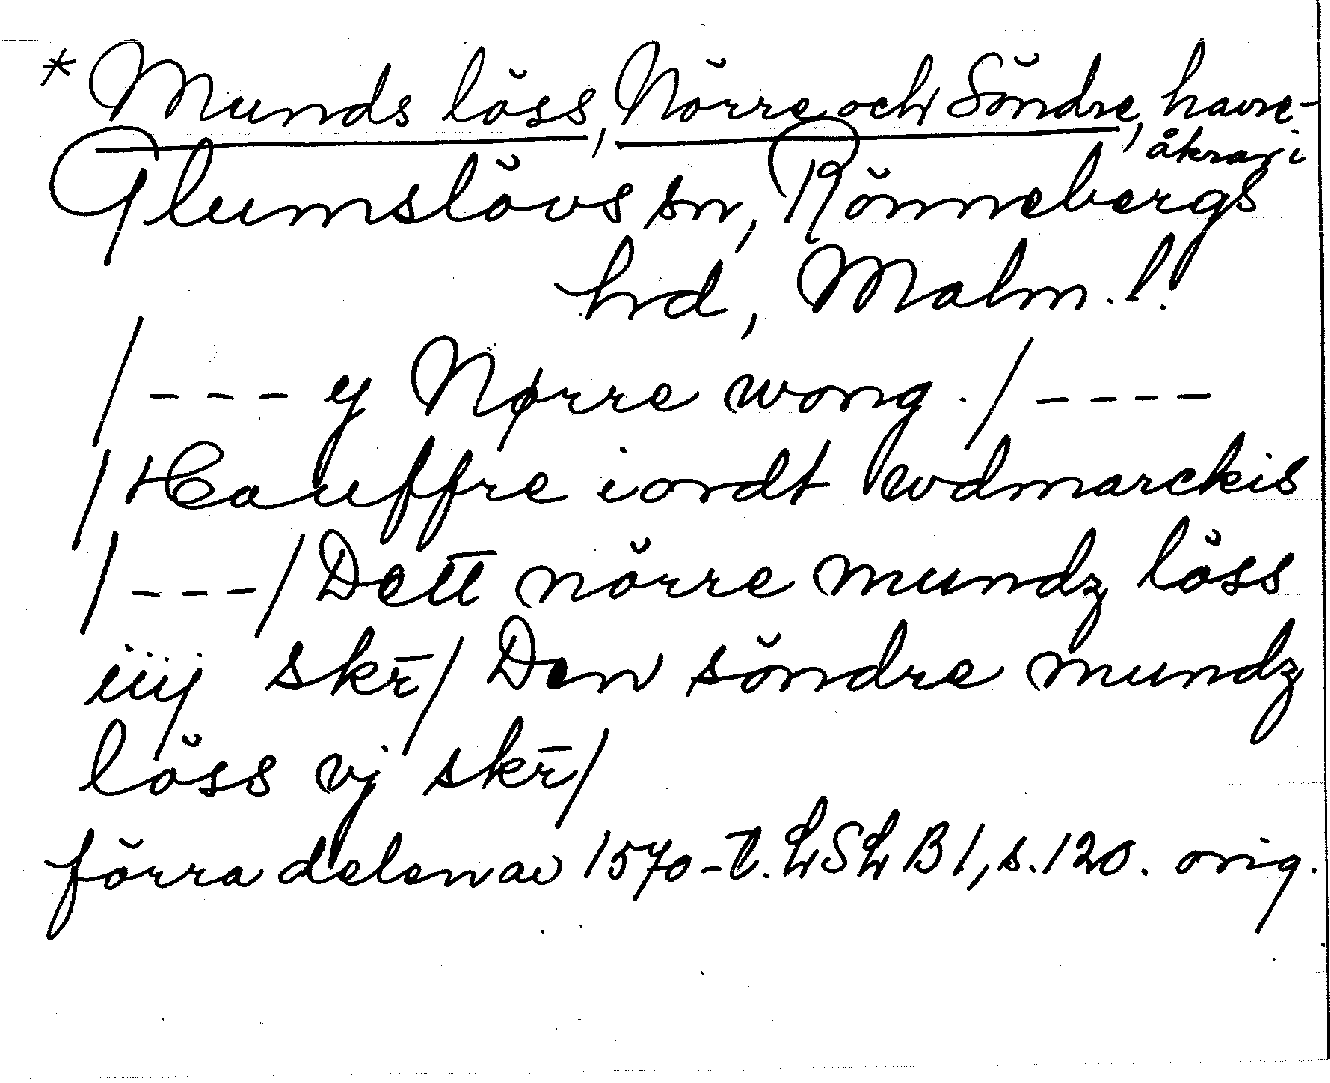 * Munds löss, Nörre och Söndre, havre-
åkrar i
Glumslövs sn, Rönnebergs
hd, Malm. l.
/ - - - y Nørre wong. / - - - -
/ Hauffre iordt wdmarckis
/ - - - / Dett nörre mundz löss
iiij skr̄ / Den söndre mundz
löss vj skr̄ /
förra delen av 1570-t. LSL B 1, s. 120. orig.